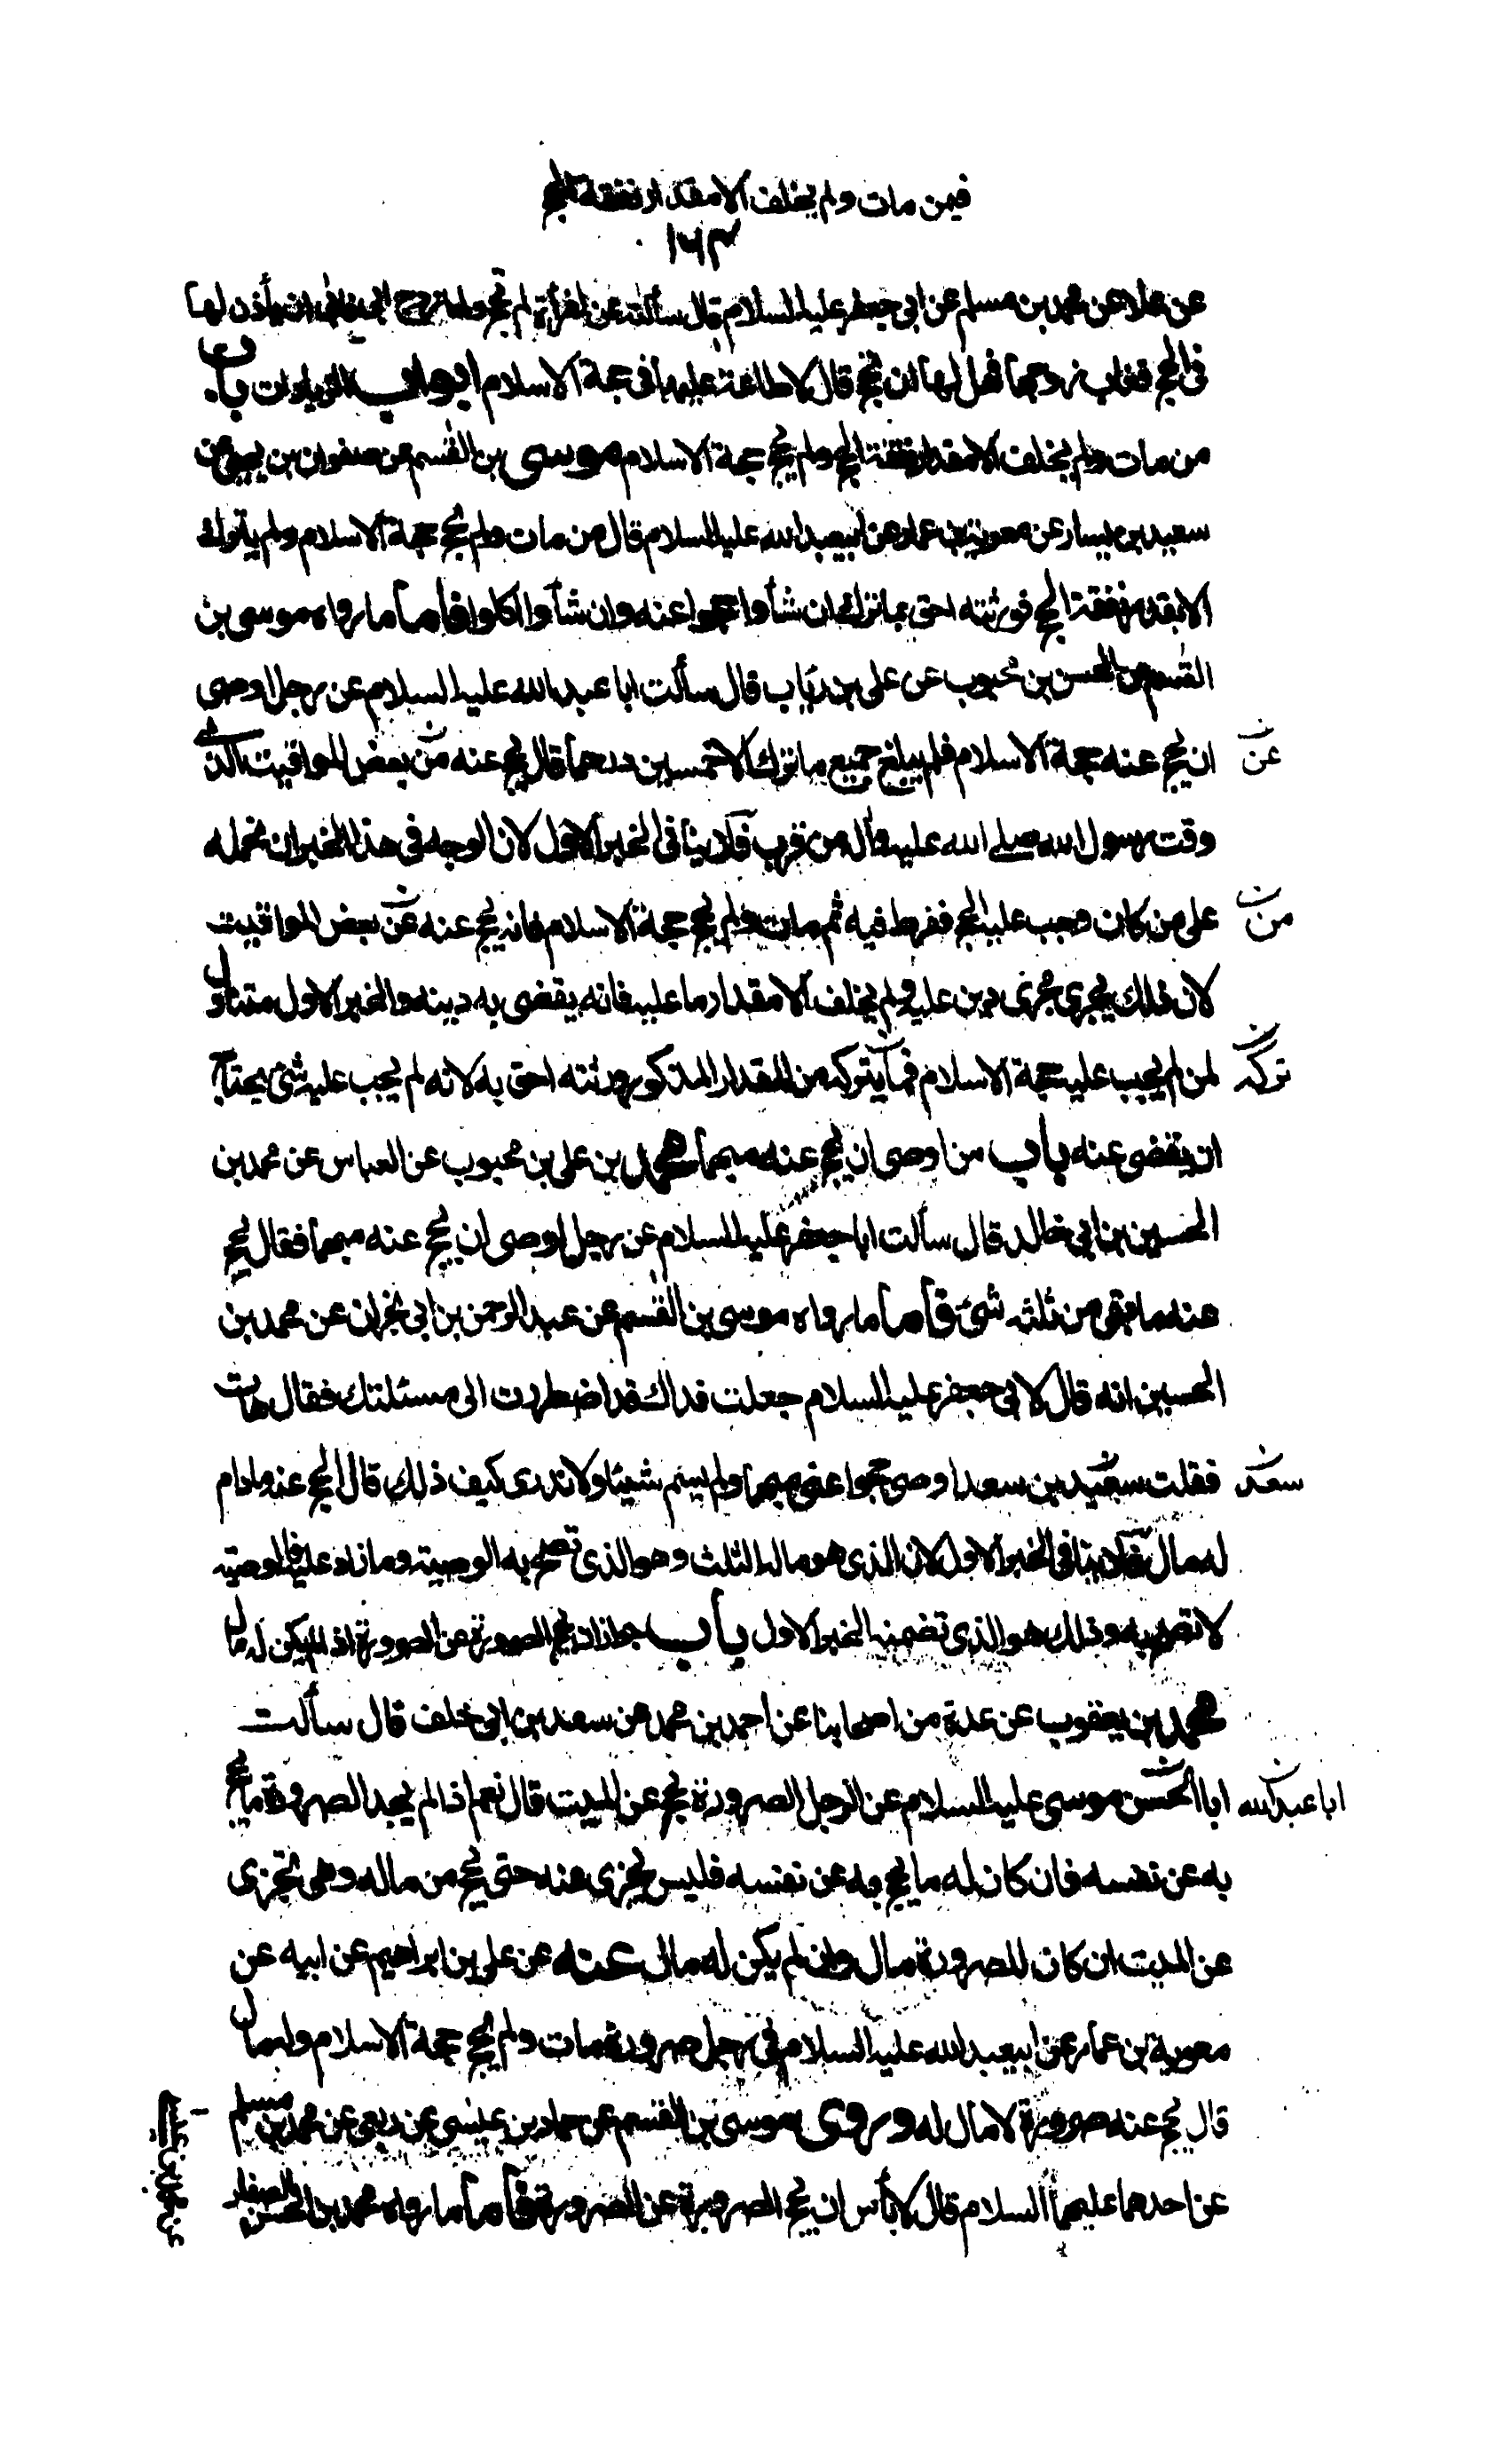 فيمن مات ولم يخلف الا مقدار نفقة الحج
١٦٣
عن علاء عن محمد بن مسلم عن ابي جعفر عليه السلام قال سألته عن امرأة لم تحج ولها زوج ان يأذن لها
في الحج فغاب زوجها فهل لها ان تحج قال لا طاعة عليها في حجة الاسلام ابواب الزيادات باب
من مات ولم يخلف الا مقدار نفقة الحج ولم يحج حجة الاسلام موسى بن القسم عن صفوان بن يحيى عن
سعيد بن يسار عن معوية بن عمار عن ابيعبد الله عليه السلام قال من مات ولم يحج حجة الاسلام ولم يترك
الا بقدر نفقة الحج فورثته احق بما ترك ان شأوا حجوا عنه وان شأوا اكلوا فأما ما رواه موسى بن
القسم عن الحسن بن محبوب عن علي بن رياب قال سألت ابا عبد الله عليه السلام عن رجل اوصى
ان يحج عنه حجة الاسلام فلم يبلغ جميع ما ترك الا خمسين درهما قال يحج عنه من بعض المواقيت التي
عن
وقت رسول الله صلى الله عليه وآله من قرب فلا ينافي الخبر الاول لان الوجه في هذا الخبر ان نحمله
على من كان وجب عليه الحج ففرط فيه ثم مات ولم يحج حجة الاسلام فانه يحج عنه عن بعض المواقيت
من
لان ذلك يجري مجرى دين عليه ولم يخلف الا مقدار ما عليه فانه يقضى به دينه والخبر الاول متناول
لمن لم يجب عليه حجة الاسلام فما يتركه من المقدار المذكور ورثته احق به لانه لم يجب عليه شئ يحتاج
تركه
ان يقضى عنه باب من اوصى ان يحج عنه مبهما محمد بن علي بن محبوب عن العباس عن محمد بن
الحسين بن ابي خالد قال سألت ابا جعفر عليه السلام عن رجل اوصى ان يحج عنه مبهما فقال يحج
عنه ما بقي من ثلثه شئ فأما ما رواه موسى بن القسم عن عبد الرحمن بن ابي نجران عن محمد بن
الحسين انه قال لابي جعفر عليه السلام جعلت فداك قد اضطررت الى مسئلتك فقال هات
فقلت سعيد بن سعد اوصى حجوا عني مبهما ولم يسم شيئا ولا ندري كيف ذلك قال يحج عنه مادام
سعد
له مال فلا ينافي الخبر الاول لان الذي هو ماله الثلث وهو الذي تصح به الوصية وما زاد عليه فالوصية
لا تصح به وذلك هو الذي تضمنه الخبر الاول باب جواز ان يحج الصرورة عن الصرورة اذا لم يكن له مال
محمد بن يعقوب عن عدة من اصحابنا عن احمد بن محمد عن سعد بن ابي خلف قال سألت
ابا الحسن موسى عليه السلام عن الرجل الصرورة يحج عن الميت قال نعم اذا لم يجد الصرورة ما يحج
ابا عبد الله
به عن نفسه فان كان له ما يحج به عن نفسه فليس يجزي عنه حتى يحج من ماله وهي تجزي
عن الميت ان كان للصرورة مال وان لم يكن له مال عنه عن علي بن ابراهيم عن ابيه عن
معوية بن عمار عن ابيعبد الله عليه السلام في رجل صرورة مات ولم يحج حجة الاسلام وله مال
قال يحج عنه صرورة لا مال له وروى موسى بن القسم عن حماد بن عيسى عن ربعي عن محمد بن مسلم
عن احدهما عليهما السلام قال لا بأس ان يحج الصرورة عن الصرورة فأما ما رواه محمد بن الحسن الصفار